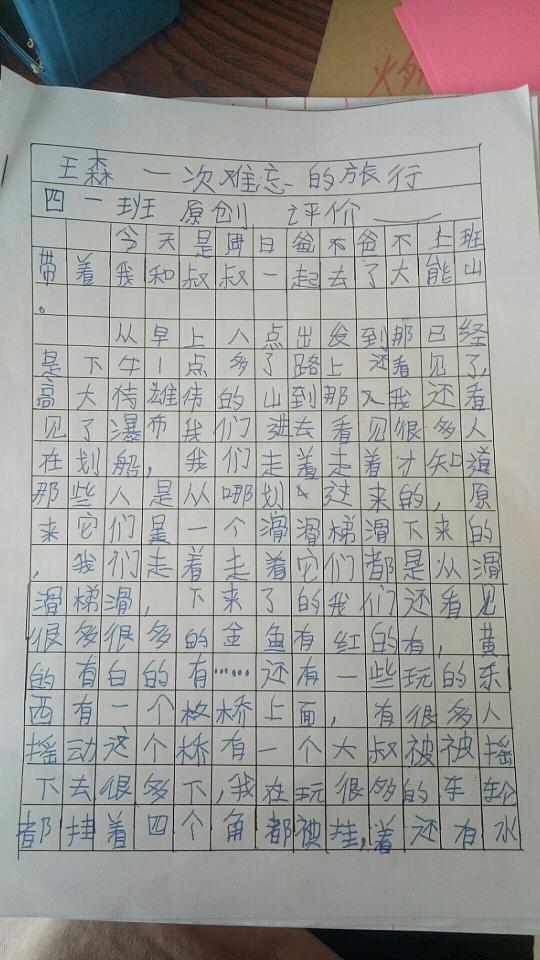 火
王森 一次难忘的旅行
四一班 原创 评价
今天是周日爸不爸不上班
带着我和叔叔一起去了大能山
。
从早上八点出发到那已经
是下午1点多了路上还看见了,
高大待雄伟的山到那又我还看
见了瀑布我们进去看见很多人
在划船,我们走着走着才知道
那些人是从哪划过来的,原
来它们是一个滑滑梯滑下来的
,我们走着走着它们都是从滑
滑梯滑,下来了的我们还看见
很多很多的金鱼有红的有,黄
的有白的有……还有一些玩的东
西有一个桥上面,有很多人
摇动这个桥有一个大叔被被摇
下去很多下,我在玩很多的车轮
都挂着四个角都被挂,着还有水